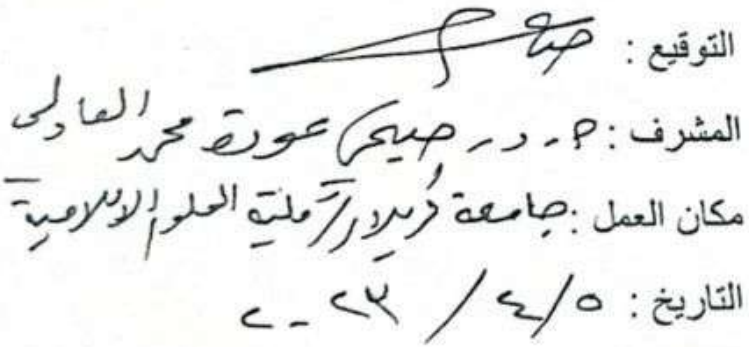 التوقيع :
المشرف : م. د. ضحى عودة محمد العادلي
مكان العمل : جامعة كربلاء / كلية العلوم الاسلامية
التاريخ : ٥ / ٤ / ٢٠٢٣